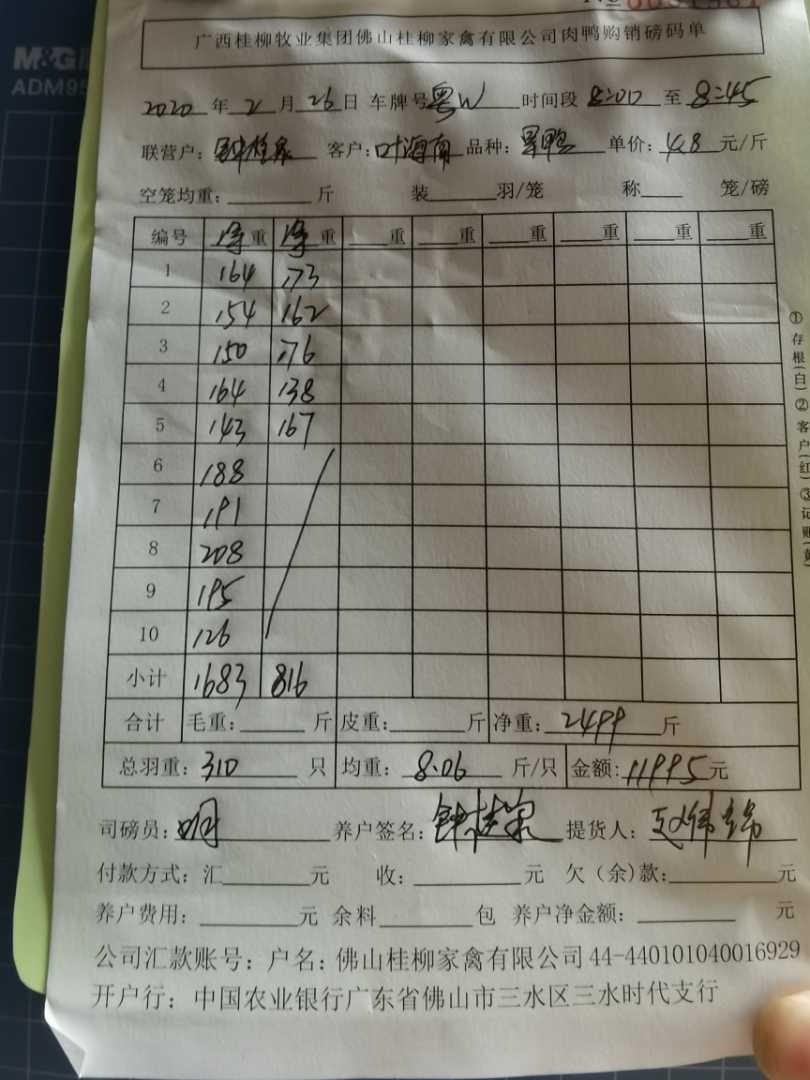 M&G
ADM95
No 0031561
广西桂柳牧业集团佛山桂柳家禽有限公司肉鸭购销磅码单
2020年2月26日 车牌号粤W 时间段8:00至8:45
联营户：钟桂泉 客户：叶海南 品种：黑鸭 单价：4.8元/斤
空笼均重：______斤 装______羽/笼 称____笼/磅
编号 净重 净重 ___重 ___重 ___重 ___重 ___重 ___重
1 164 173
2 154 162
3 150 176
4 164 138
5 143 167
6 188
7 191
8 208
9 195
10 126
小计 1683 816
合计 毛重：______斤 皮重：______斤 净重：2499斤
总羽重：310只 均重：8.06斤/只 金额：11995元
司磅员：明 养户签名：钟桂泉 提货人：
付款方式：汇______元 收：______元 欠（余）款：______元
养户费用：______元 余料______包 养户净金额：______元
公司汇款账号：户名：佛山桂柳家禽有限公司 44-440101040016929
开户行：中国农业银行广东省佛山市三水区三水时代支行
①存根(白)②客户(红)③记账(黄)